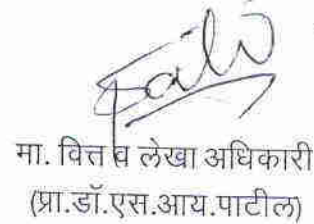 मा. वित्त व लेखा अधिकारी
(प्रा.डॉ.एस.आय.पाटील)